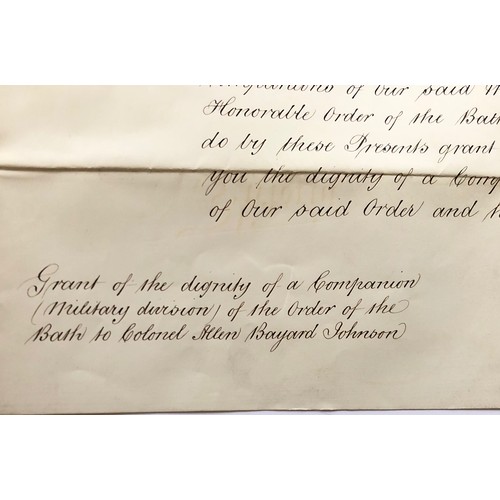 Companions of Our said M
Honorable Order of the Bath
do by these Presents grant
you the dignity of a Comp
of Our said Order and
Grant of the dignity of a Companion
(Military division) of the Order of the
Bath to Colonel Allen Bayard Johnson